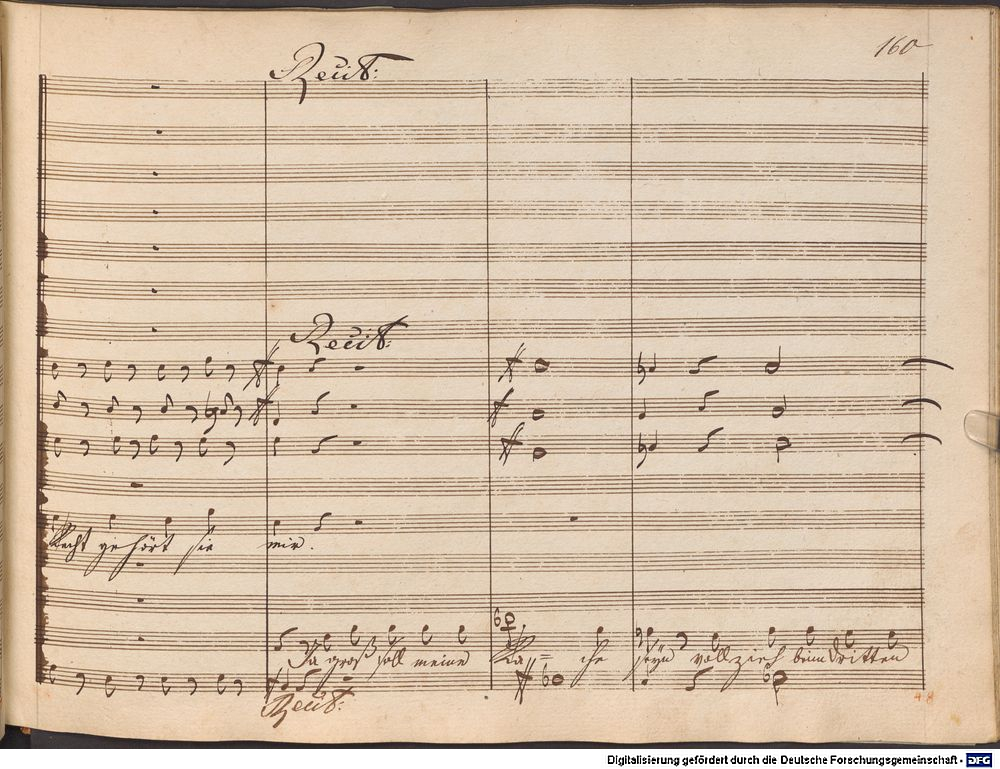 160
Recit:
Recit:
Recht gehört sie mir.
Ja groß soll meine Ra = che seyn vollzieh beim dritten
Recit:
48
Digitalisierung gefördert durch die Deutsche Forschungsgemeinschaft - DFG